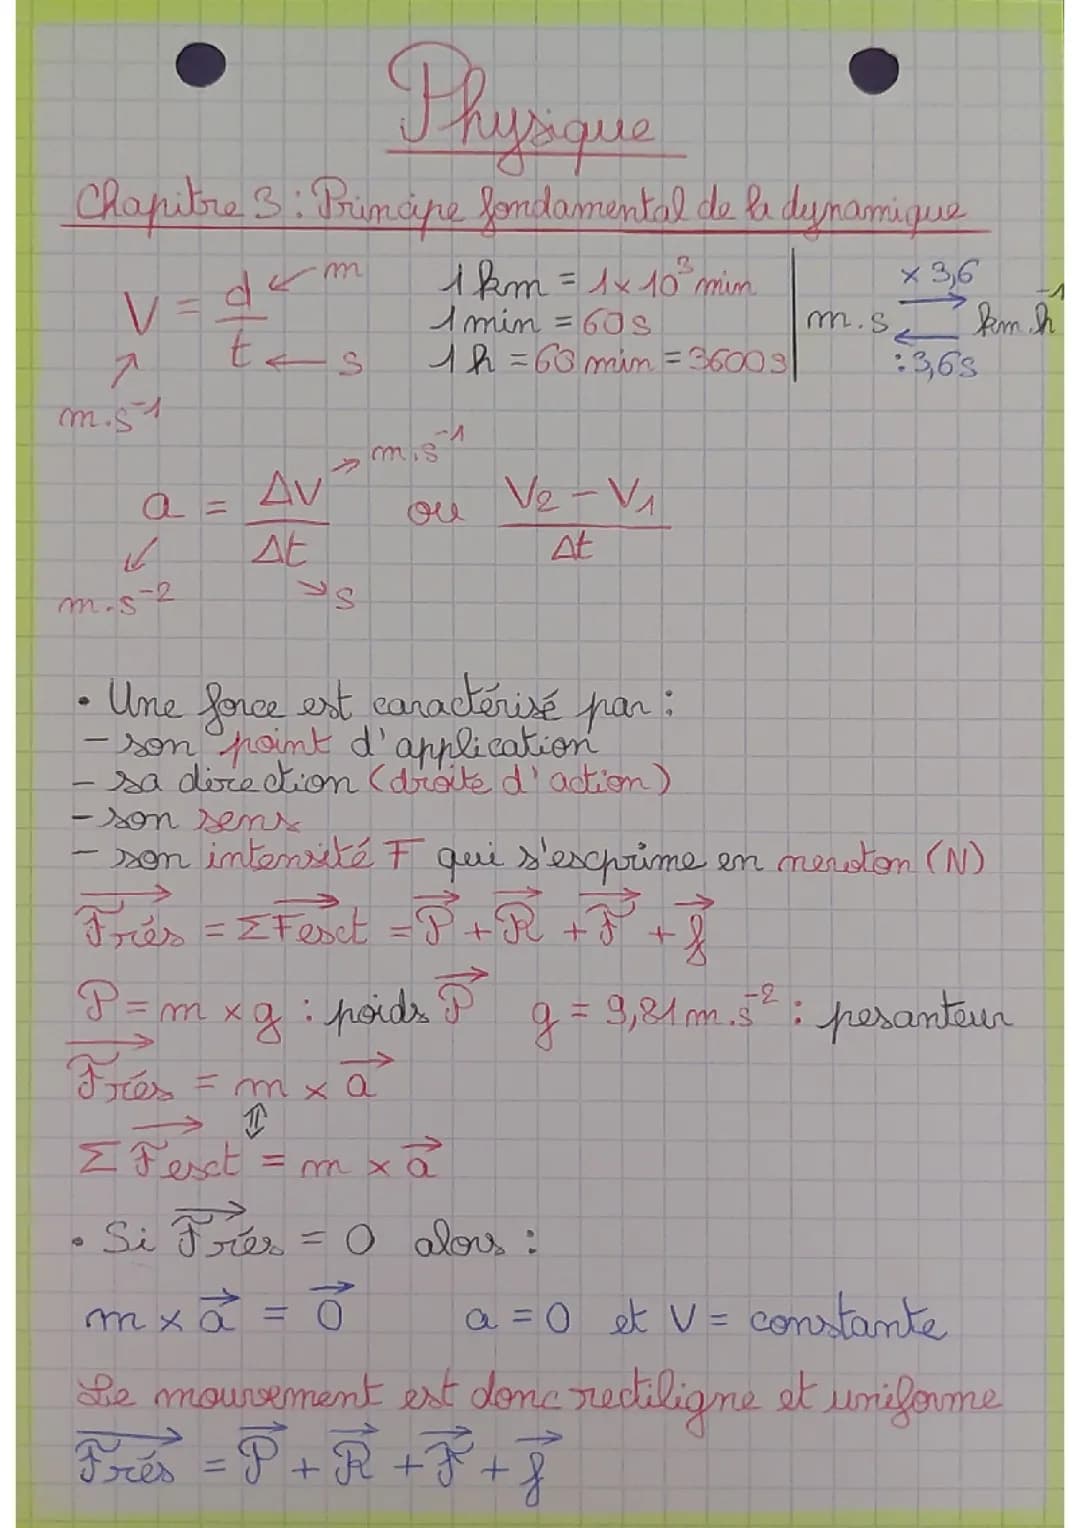 Physique
Chapitre 3 : Principe fondamental de la dynamique
V = d/t
m
s
m.s⁻¹
1 km = 1 × 10³ min
1 min = 60s
1 h = 60 min = 3600s
× 3,6
m.s km.h⁻¹
: 3,6s
a = ΔV/Δt ou V₂ - V₁/Δt
m.s⁻¹
m.s⁻² s
• Une force est caractérisé par :
- son point d'application
- sa direction (droite d'action)
- son sens
- son intensité F qui s'exprime en newton (N)
F⃗rés = ΣF⃗ext = P⃗ + R⃗ + F⃗ + f⃗
P = m × g : poids P⃗ g = 9,81 m.s⁻² : pesanteur
F⃗rés = m × a⃗
⇕
Σ F⃗ext = m × a⃗
• Si F⃗rés = 0 alors :
m × a⃗ = 0⃗ a = 0 et V = constante
Le mouvement est donc rectiligne et uniforme
F⃗rés = P⃗ + R⃗ + F⃗ + f⃗